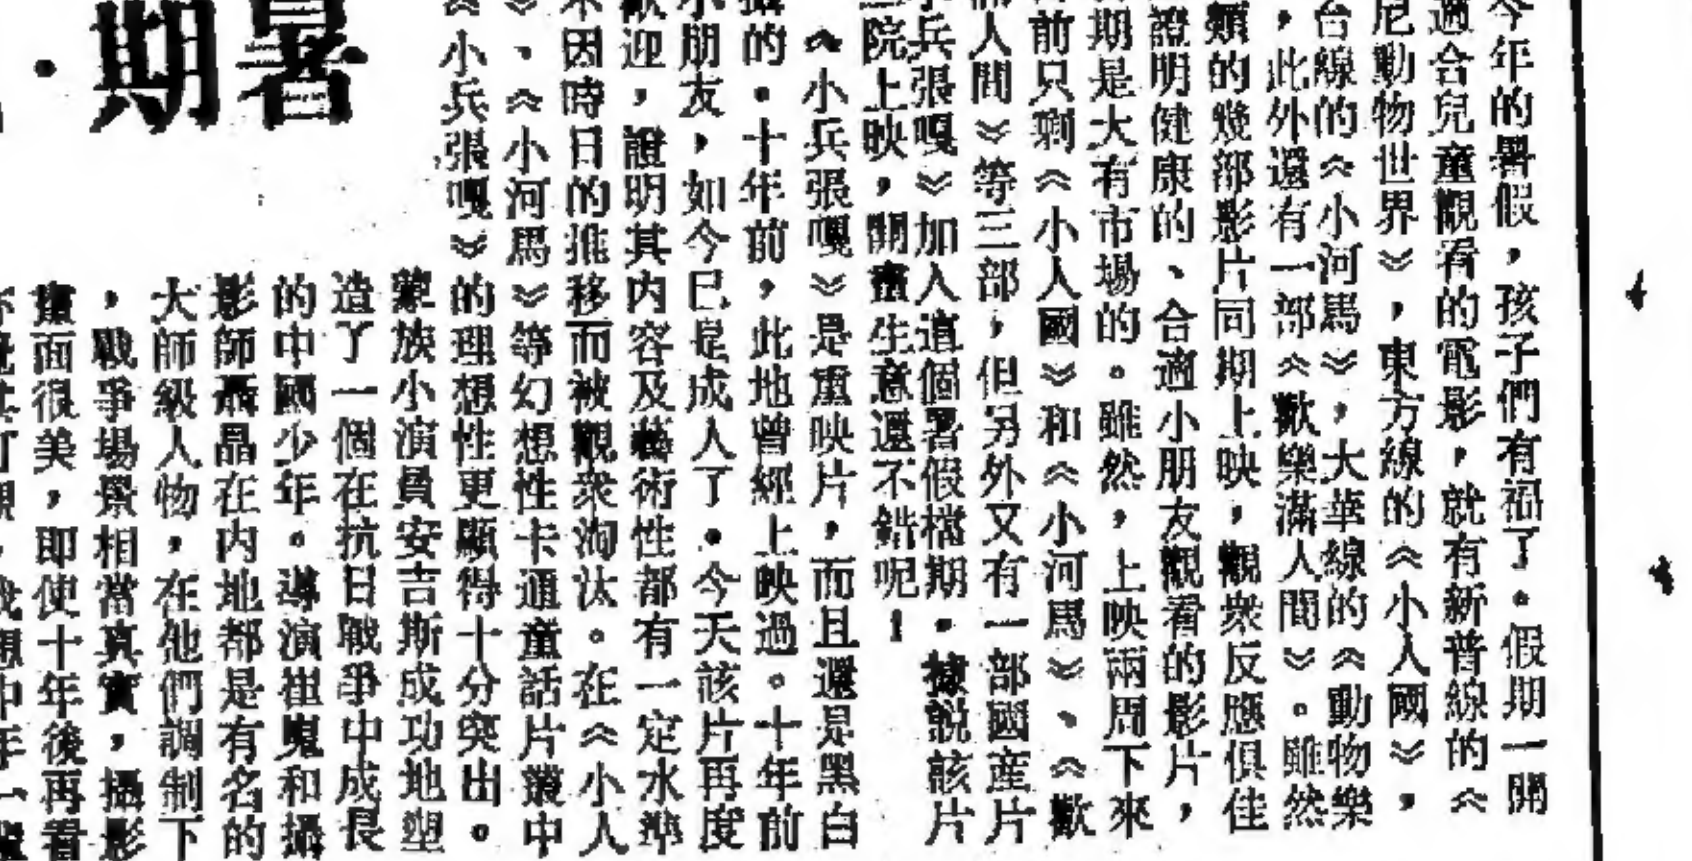 暑期·
今年的暑假,孩子們有福了。假期一開
適合兒童觀看的電影,就有新普線的《
尼動物世界》,東方線的《小人國》,
台線的《小河馬》,大華線的《動物樂
,此外還有一部《歡樂滿人間》。雖然
類的幾部影片同期上映,觀衆反應俱佳
證明健康的、合適小朋友觀看的影片,
期是大有市場的。雖然,上映兩周下來
前只剩《小人國》和《小河馬》、《歡
人間》等三部,但另外又有一部國産片
兵張嘎》加入這個暑假檔期。據說該片
院上映,開畫生意還不錯呢!
《小兵張嘎》是重映片,而且還是黑白
攝的。十年前,此地曾經上映過。十年前
小朋友,如今已是成人了。今天該片再度
歡迎,證明其内容及藝術性都有一定水準
不因時日的推移而被觀衆淘汰。在《小人
》、《小河馬》等幻想性卡通童話片叢中
《小兵張嘎》的理想性更顯得十分突出。
蒙族小演員安吉斯成功地塑
造了一個在抗日戰爭中成長
的中國少年。導演崔嵬和攝
影師聶晶在内地都是有名的
大師級人物,在他們調制下
,戰爭場景相當真實,攝影
畫面很美,即使十年後再看